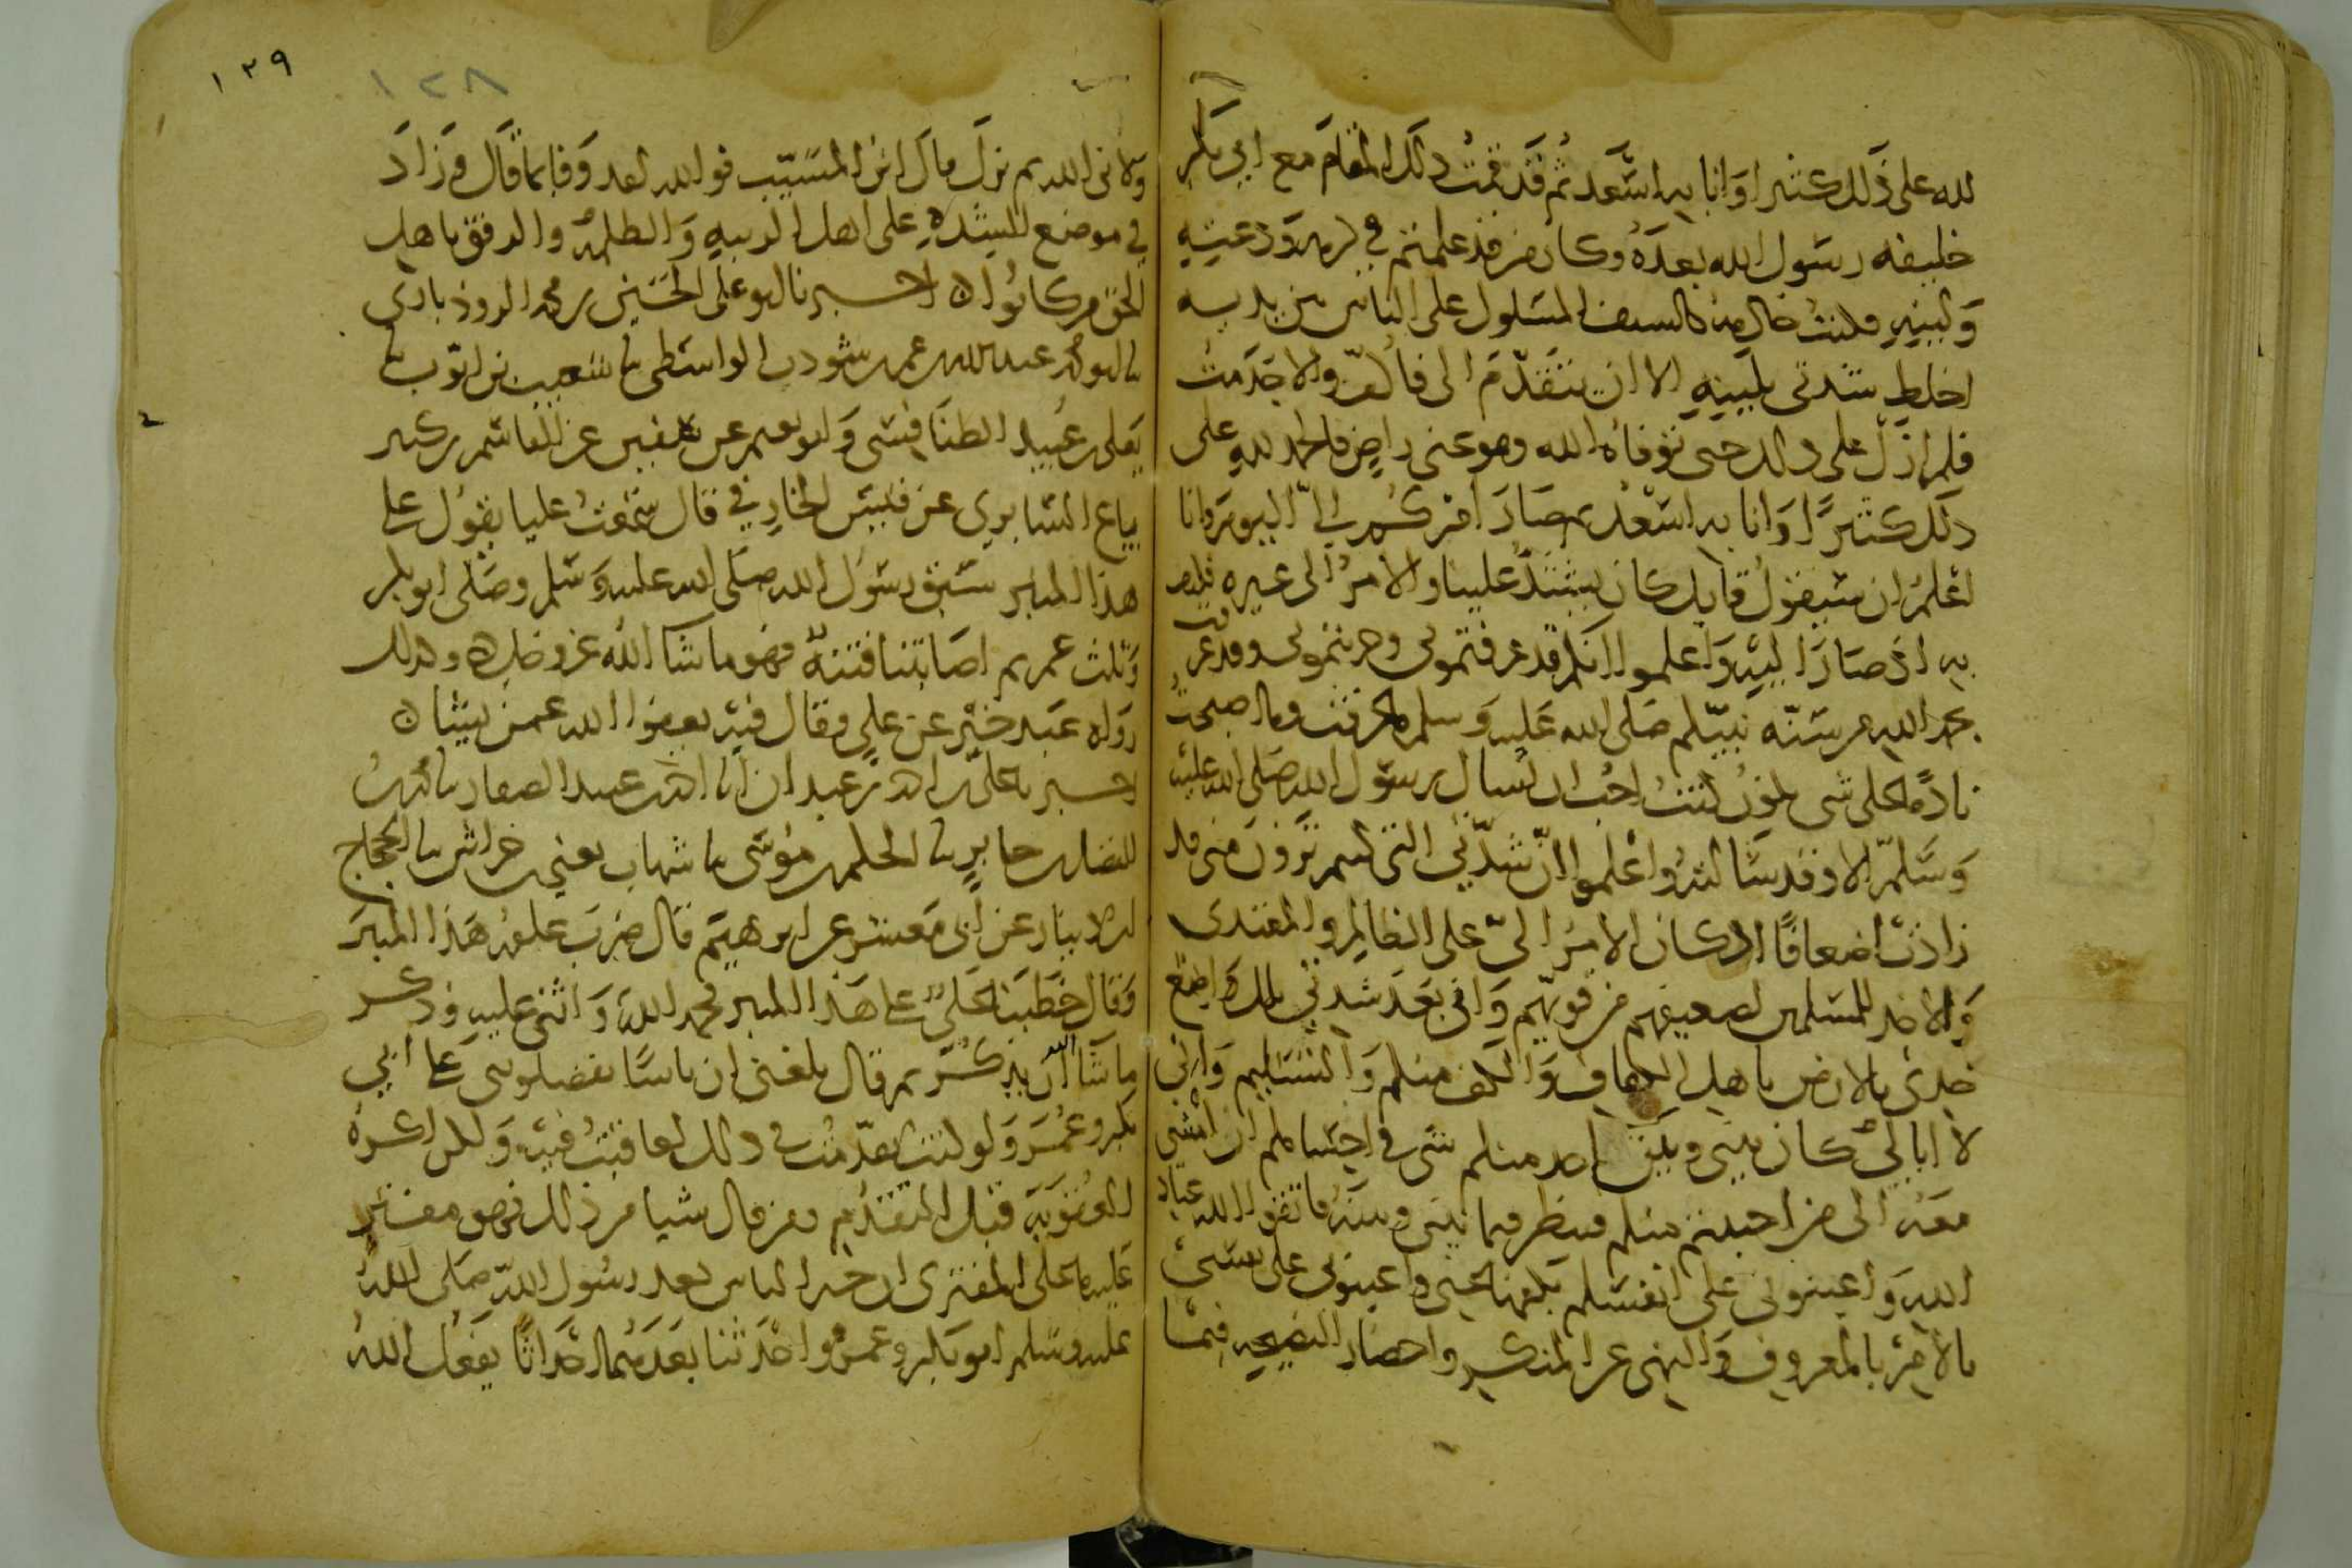 لله على ذلك كثيرا وانا به اسعد ثم قد قمت ذلك المقام مع ابي بكر
خليفه رسول الله بعده وكان من قد علمتم في كرمه ودعته
ولينه فكنت خادمه كالسيف المسلول على الناس بين يديه
اخلط شدتي بلينه الا ان يتقدم الى فاكف والا قدمت
فلم ازل على ذلك حتى توفاه الله وهو عني راض فالحمد لله على
ذلك كثيرًا وانا به اسعد ثم صار امركم الىّ اليوم وانا
اعلم ان سيقول قايل كان يشتد علينا والامر الى غيره فكيف
به اذ صار اليه واعلموا انكم قد عرفتموني وجربتموني وقد عرفت
بحمد الله من سنه نبيكم صلى الله عليه وسلم ما عرفت وما اصبحت
نادمًا على شي يكون كنت احب ان اسال رسول الله صلى الله عليه
وسلم الا وقد سالته واعلموا ان شدتي التي كنتم ترون مني قد
زادت اضعافًا اذ كان الامر الىّ على الظالم والمعتدى
والاخذ للمسلمين لضعيفهم من قويهم واني بعد شدتي تلك واضع
خدى بالارض لاهل العفاف والكف منكم والتسليم واني
لا ابالي كان بيني وبين احد منكم شي في احكامكم ان امشي
معه الى من احببتم منكم فينظر فيما بيني وبينه فاتقوا الله عباد
الله واعينوني على انفسكم بكفها عني واعينوني على نفسي
بالامر بالمعروف والنهى عن المنكر واحضار النصيحه فيما
١٣٩
١٢٨
ولاني الله ثم نزل قال ابن المسيّب فوالله لقد وفا بما قال وزاد
في موضع الشده على اهل الريبه والظلم والرفق باهل
الحق من كانوا ه اخبرنا ابو على الحسين بن محمد الروذبارى
نا ابو محمد عبد الله بن عمر بن شوذب الواسطى نا شعيب بن ايوب نا
يعلى بن عبيد الطنافسى وابو نعيم عن سفين عن القاسم بن كثير
بياع السابرى عن قيس الخارفي قال سمعت عليا يقول على
هذا المنبر سبق رسول الله صلى الله عليه وسلم وصلى ابو بكر
وثلث عمر ثم اصابتنا فتنة فهو ما شا الله عز وجل ه وكذلك
رواه عبد خير عن علي وقال فيه يعفوا الله عمن يشا ه
اخبرنا على بن احمد بن عبدان انا احمد بن عبيد الصفار نا
الفضل بن جابر نا الحكم بن موسى نا شهاب يعني بن خراش نا الحجاج
بن دينار عن ابى معشر عن ابرهيم قال ضرب علقمه هذا المنبر
وقال خطبنا على على هذا المنبر فحمد الله واثنى عليه وذكر
ما شا الله ان يذكر ثم قال بلغني ان ناسًا يفضلوني على ابي
بكر وعمر ولو كنت تقدمت في ذلك لعاقبت فيه ولكن اكره
العقوبه قبل التقدم فمن قال شيا من ذلك فهو مفتر
عليه ما على المفترى ان خير الناس بعد رسول الله صلى الله
عليه وسلم ابو بكر وعمر واحدثنا بعدهما احداثًا يفعل الله